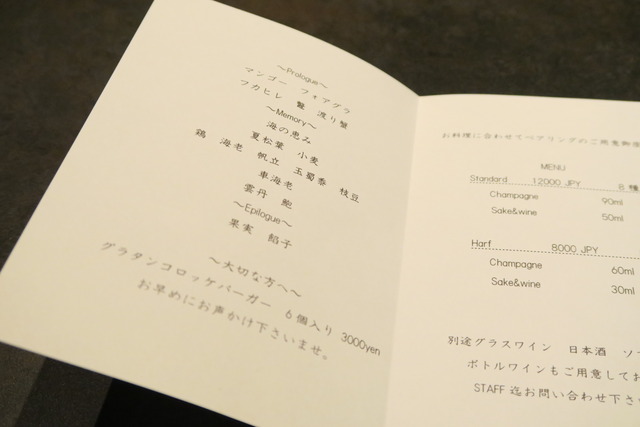 ～Prologue～
マンゴー フォアグラ
フカヒレ 鼈 渡り蟹
～Memory～
海の恵み
夏松葉 小麦
鶏 海老 帆立 玉蜀黍 枝豆
車海老
雲丹 鮑
～Epilogue～
果実 餡子
～大切な方へ～
グラタンコロッケバーガー 6個入り 3000yen
お早めにお声かけ下さいませ。
お料理に合わせてペアリングのご用意御座
MENU
Standard 12000 JPY 8種
Champagne 90ml
Sake&wine 50ml
Harf 8000 JPY
Champagne 60ml
Sake&wine 30ml
別途グラスワイン 日本酒 ソ
ボトルワインもご用意してお
STAFF迄お問い合わせ下さ